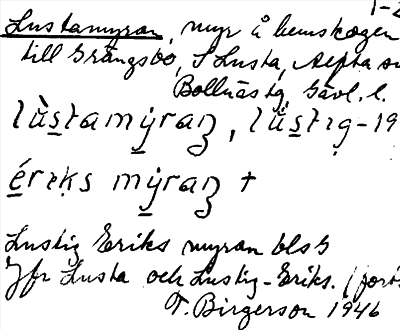 1-2
Lustamyran, myr å hemskogen
till Grängsbo, S Lusta, Alfta sn
Bollnäs tg, Gävl. l.
lùstamýraꞃ, lùstig-
ériks mýraꞃ +
Lustig Eriks myran bls 5
Jfr Lusta och Lustig-Eriks.
T. Birgerson 1946